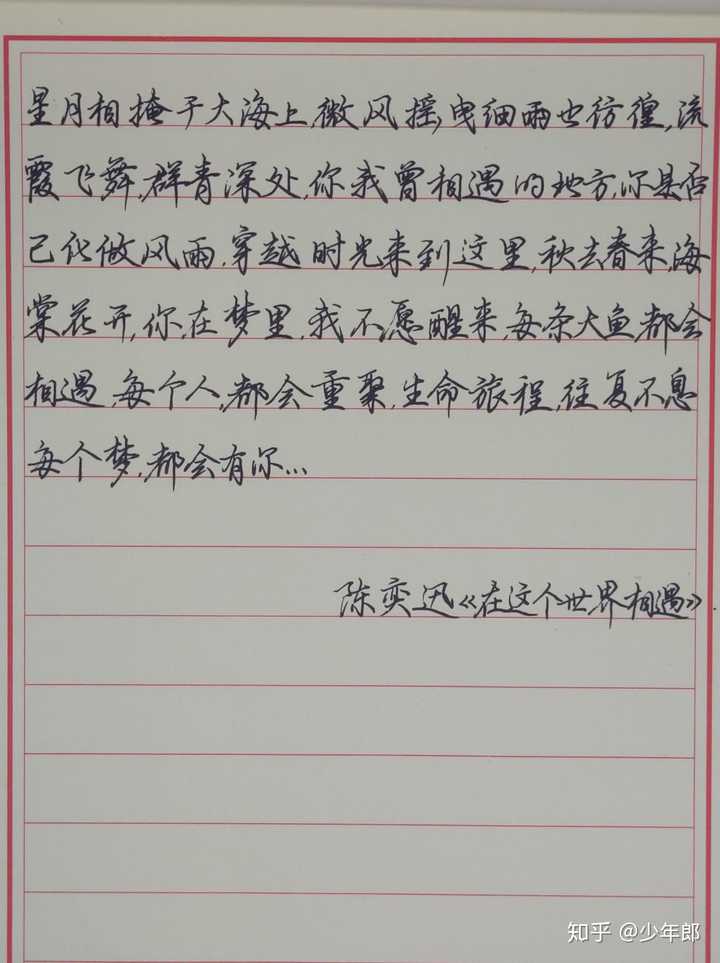 星月相掩于大海上,微风摇曳细雨也彷徨,流
霞飞舞,群青深处,你我曾相遇的地方,你是否
已化做风雨,穿越时光来到这里,秋去春来,海
棠花开,你在梦里,我不愿醒来,每条大鱼都会
相遇,每个人,都会重聚,生命旅程,往复不息
每个梦,都会有你...
陈奕迅《在这个世界相遇》.
知乎 @少年郎